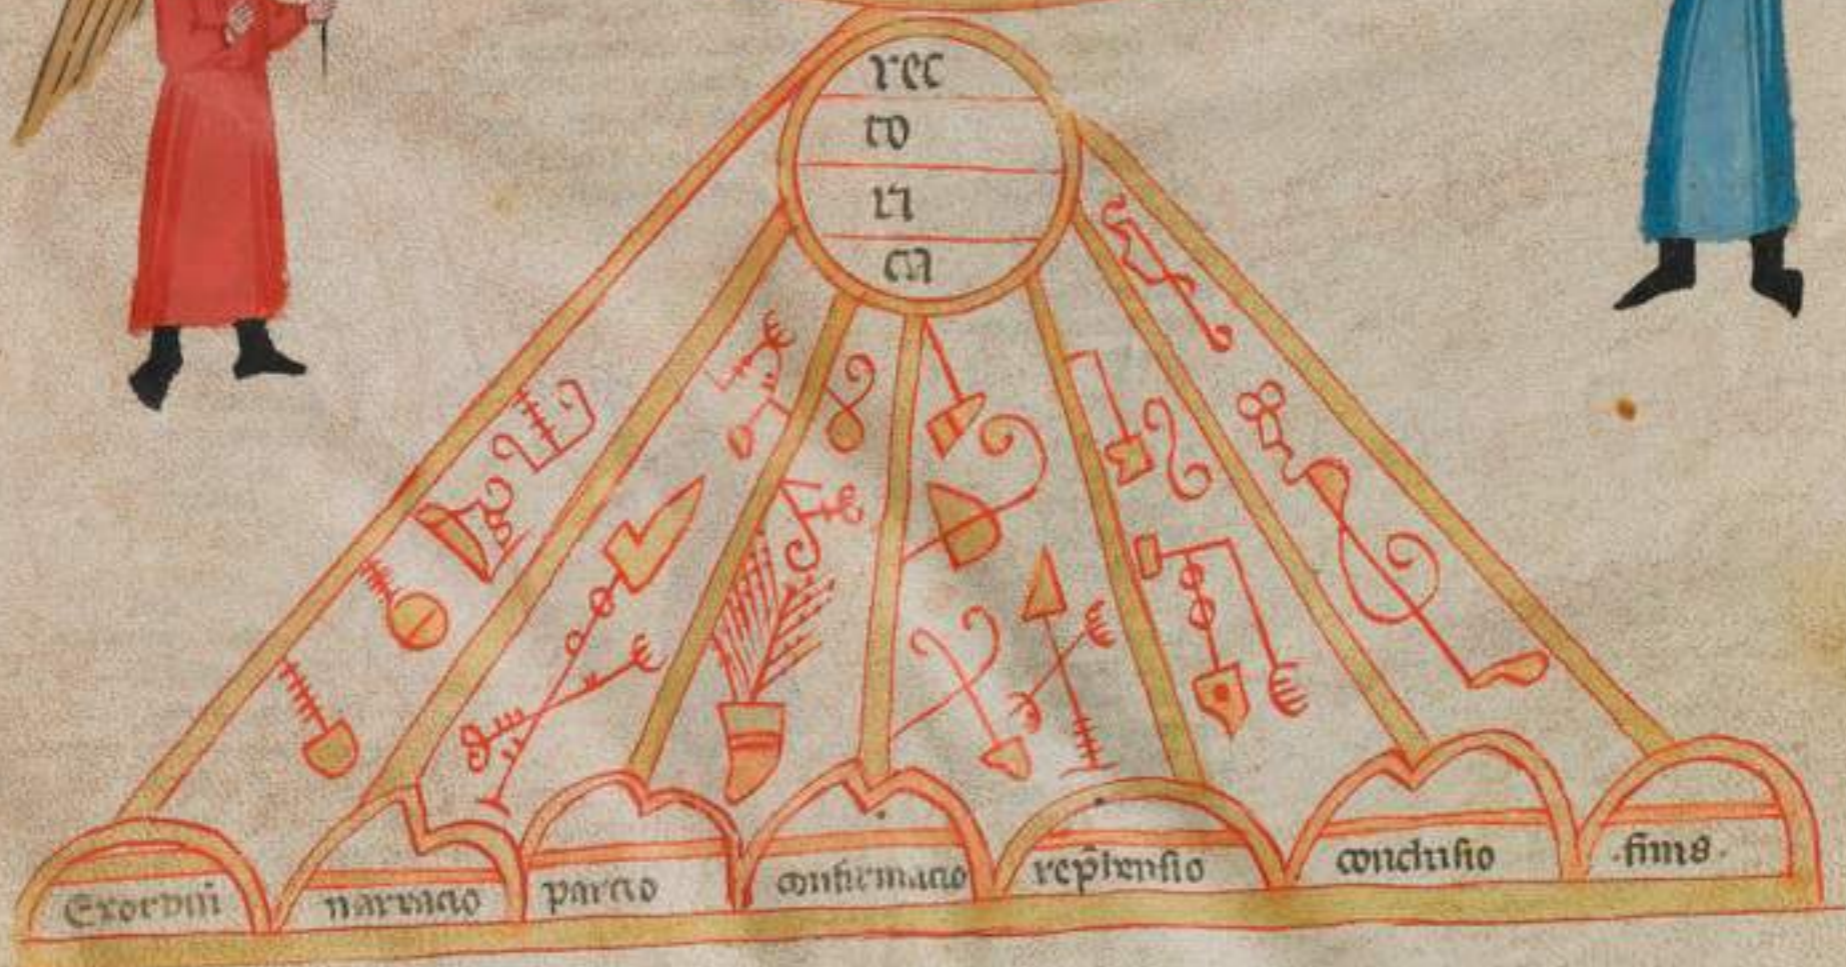 rec
to
ri
ca
Exordiū
narracio
parcio
confirmacio
rep̄hensio
conclusio
·finis·